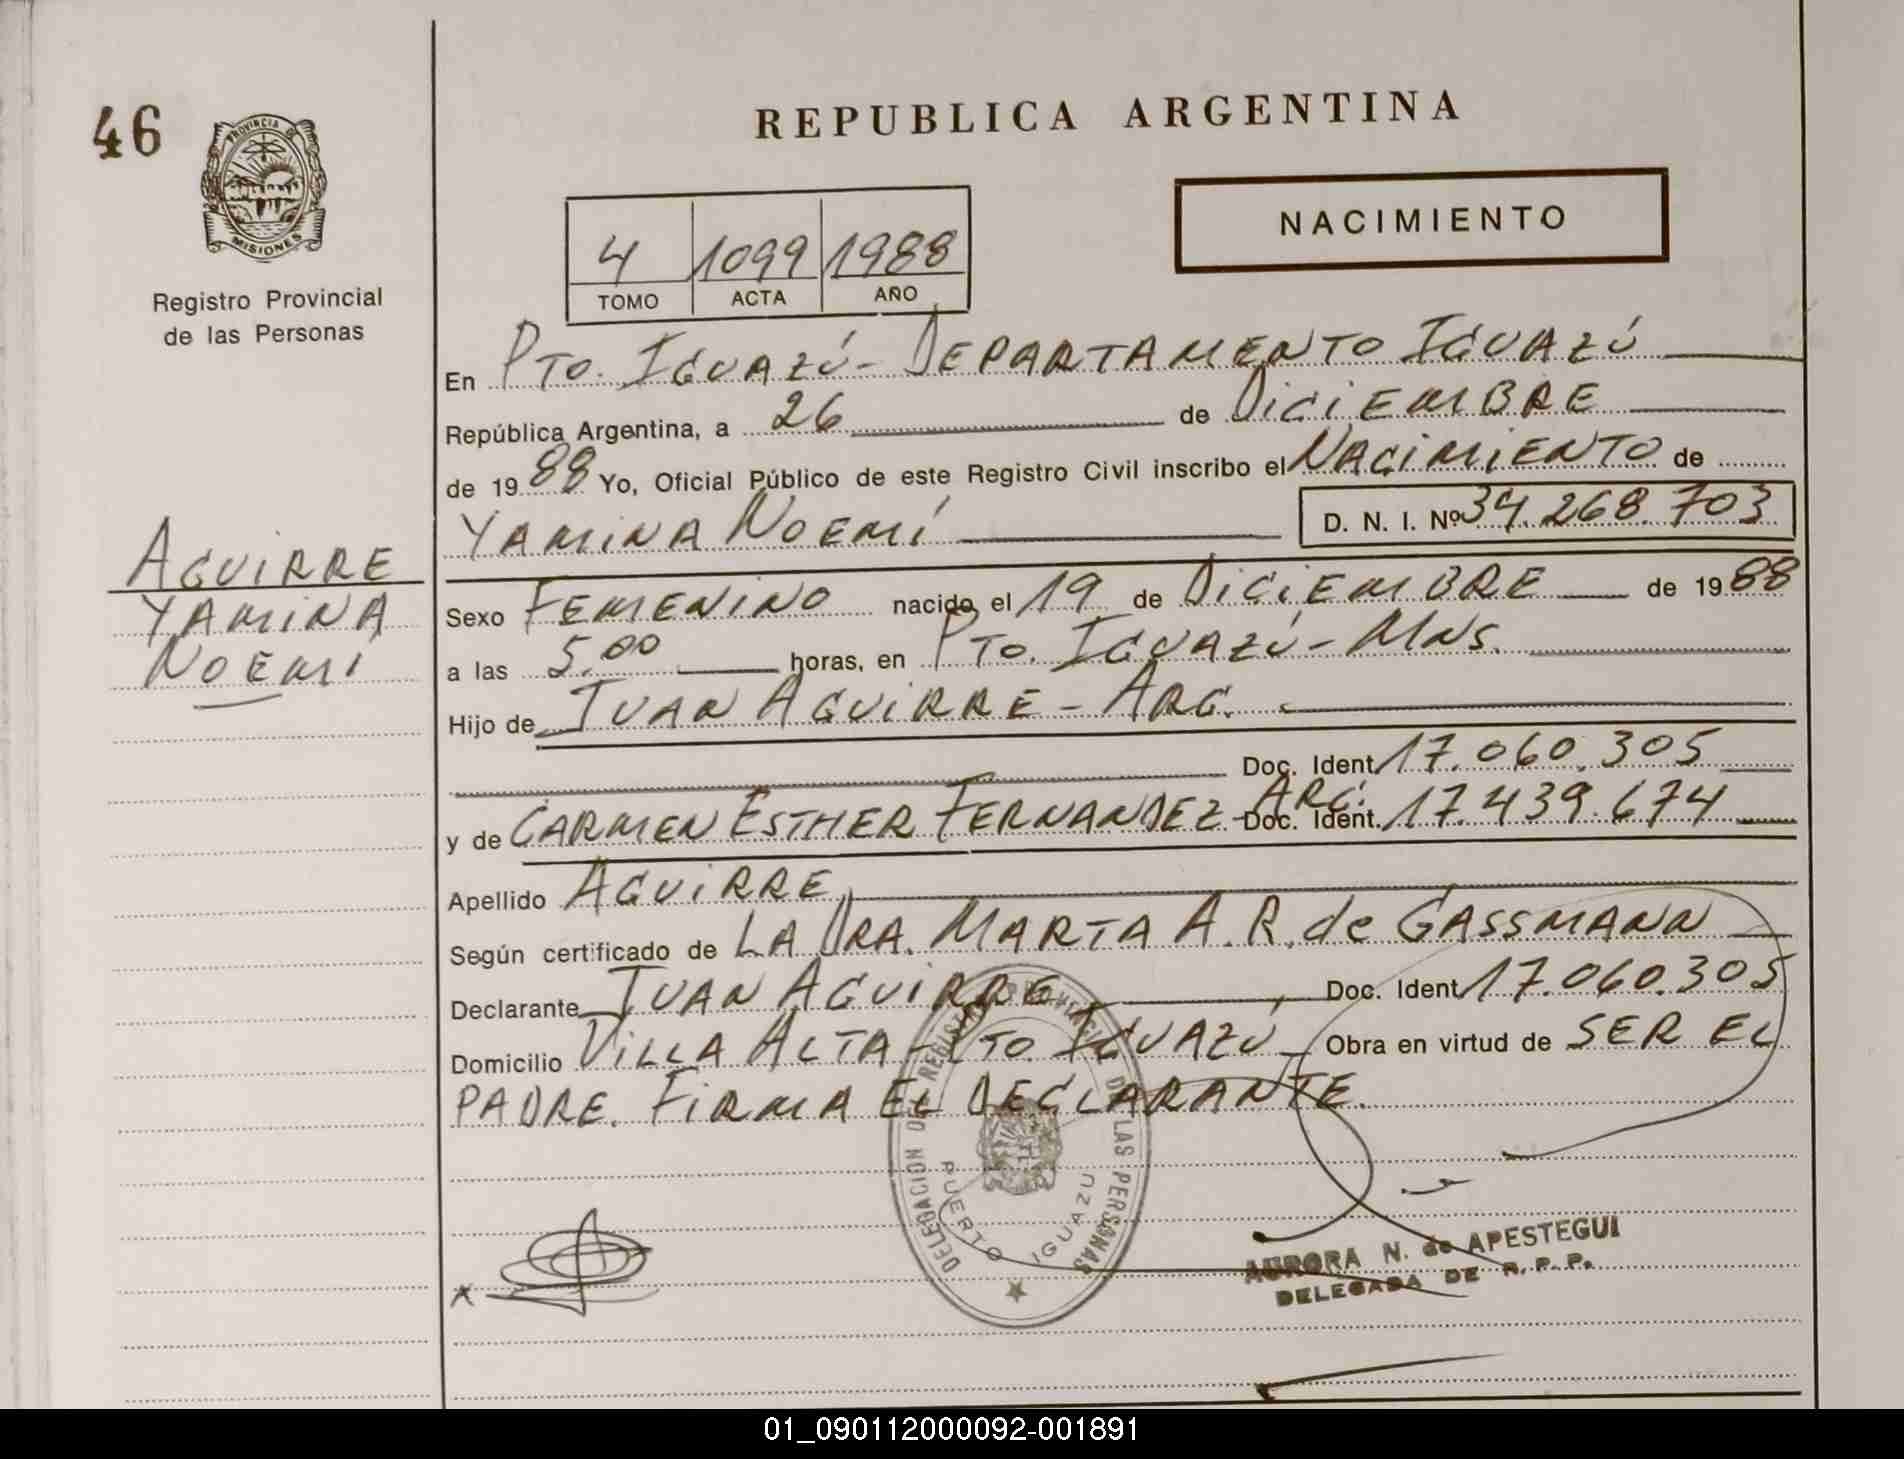 46
PROVINCIA DE
MISIONES
Registro Provincial
de las Personas
REPUBLICA ARGENTINA
NACIMIENTO
4 1099 1988
TOMO ACTA AÑO
En PTO. IGUAZÚ - DEPARTAMENTO IGUAZÚ
República Argentina, a 26 de DICIEMBRE
de 1988 Yo, Oficial Público de este Registro Civil inscribo el NACIMIENTO de
YAMINA NOEMÍ D. N. I. Nº 34.268.703
AGUIRRE
YAMINA
NOEMÍ
Sexo FEMENINO nacido el 19 de DICIEMBRE de 1988
a las 5.00 horas, en PTO. IGUAZÚ - MNS.
Hijo de JUAN AGUIRRE - ARG.
Doc. Ident. 17.060.305
y de CARMEN ESTHER FERNANDEZ - ARG. Doc. Ident. 17.439.674
Apellido AGUIRRE
Según certificado de LA DRA. MARTA A. R. de GASSMANN
Declarante JUAN AGUIRRE Doc. Ident. 17.060.305
Domicilio VILLA ALTA - PTO. IGUAZÚ - Obra en virtud de SER EL
PADRE. FIRMA EL DECLARANTE.
DELEGACION DE REGISTRO PROVINCIAL DE LAS PERSONAS
PUERTO IGUAZU
x
AURORA N. de APESTEGUI
DELEGADA DE R. P. P.
01_090112000092-001891